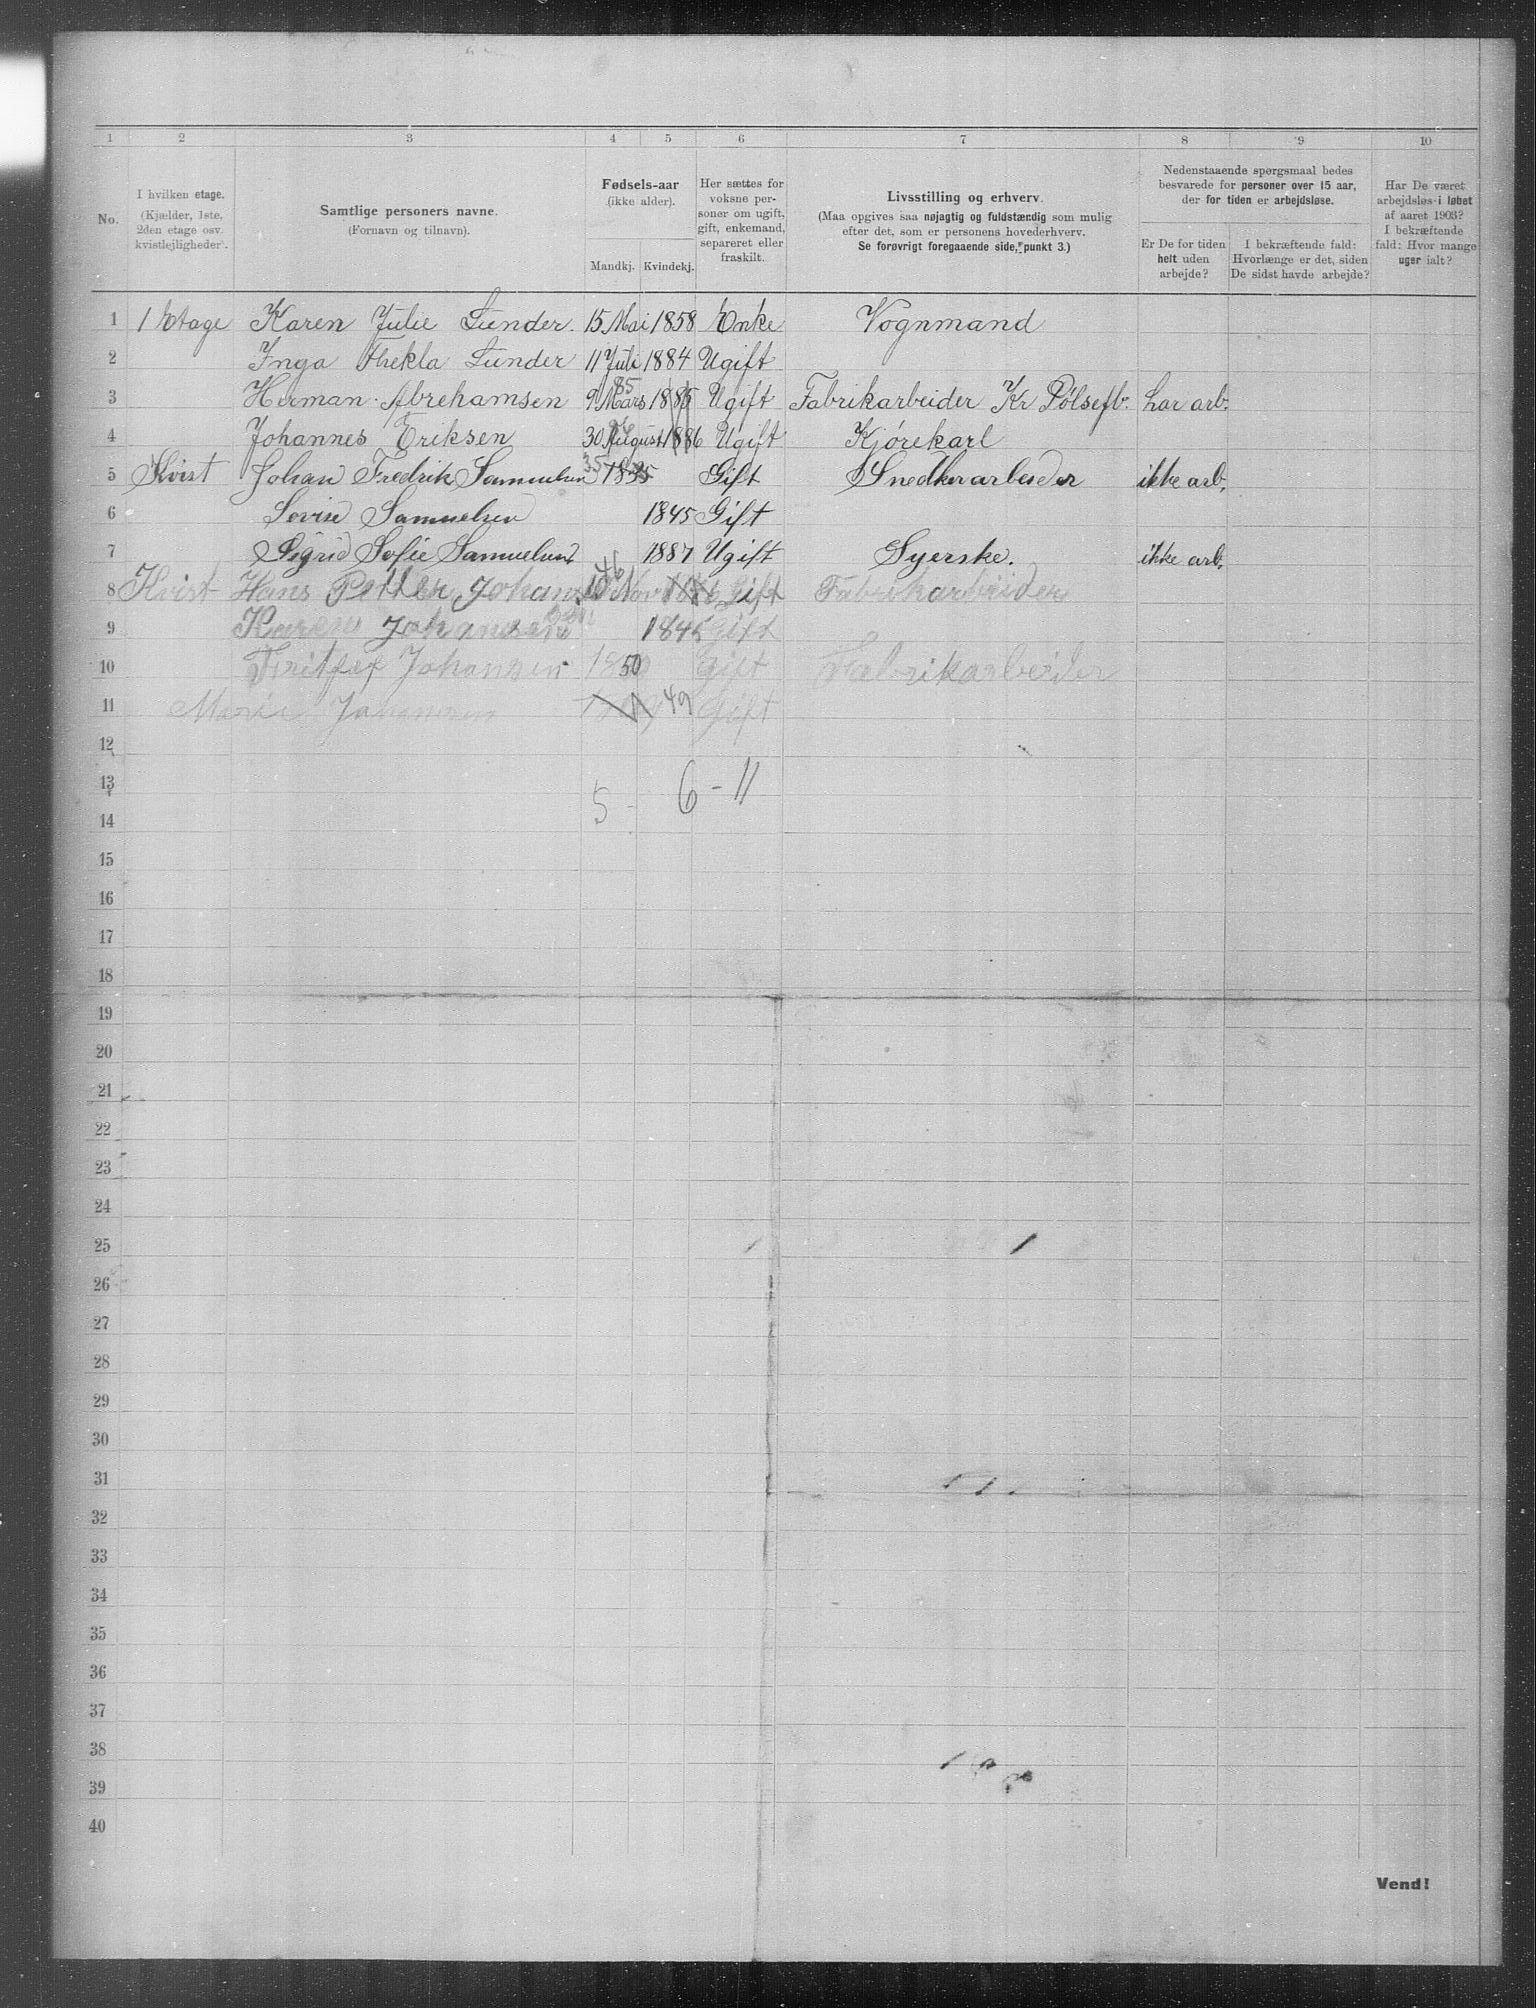 1 2 3 4 5 6 7 8 9 10
No.
I hvilken etage.
(Kjælder, 1ste,
2den etage osv.
kvistlejligheder).
Samtlige personers navne.
(Fornavn og tilnavn).
Fødsels-aar
(ikke alder).
Mandkj. Kvindekj.
Her sættes for
voksne per-
soner om ugift,
gift, enkemand,
separeret eller
fraskilt.
Livsstilling og erhverv.
(Maa opgives saa nøjagtig og fuldstændig som mulig
efter det, som er personens hovederhverv.
Se forøvrigt foregaaende side, punkt 3.)
Nedenstaaende spørgsmaal bedes
besvarede for personer over 15 aar,
der for tiden er arbejdsløse.
Er De for tiden
helt uden
arbejde?
I bekræftende fald:
Hvorlænge er det, siden
De sidst havde arbejde?
Har De været
arbejdsløs i løbet
af aaret 1903?
I bekræftende
fald: Hvor mange
uger ialt?
1 1 Etage Karen Julie Lunder. 15 Mai 1858 Enke Vognmand
2 Inga Thekla Lunder 11 Juli 1884 Ugift
3 Herman Abrehamsen 9 Mars 85 1885 Ugift Fabrikarbeider Kr Pølsefb. har arb.
4 Johannes Eriksen 30 August 86 1886 Ugift Kjørekarl
5 Kvist Johan Fredrik Samuelsen 35 1835 Gift Snedkerarbeider ikke arb.
6 Lovise Samuelsen 1845 Gift
7 Sigrid Sofie Samuelsen 1887 Ugift Syerske. ikke arb.
8 Kvist Hans Petter Johansen 10 Nov 46 Gift Fabrikarbeider
9 Karen Johansen 1845 Gift
10 Johansen 1850 Gift Fabrikarbeider
11 Marie Johansen 49 Gift
12
13 5 - 6 - 11
14
15
16
17
18
19
20
21
22
23
24
25
26
27
28
29
30
31
32
33
34
35
36
37
38
39
40
Vend!